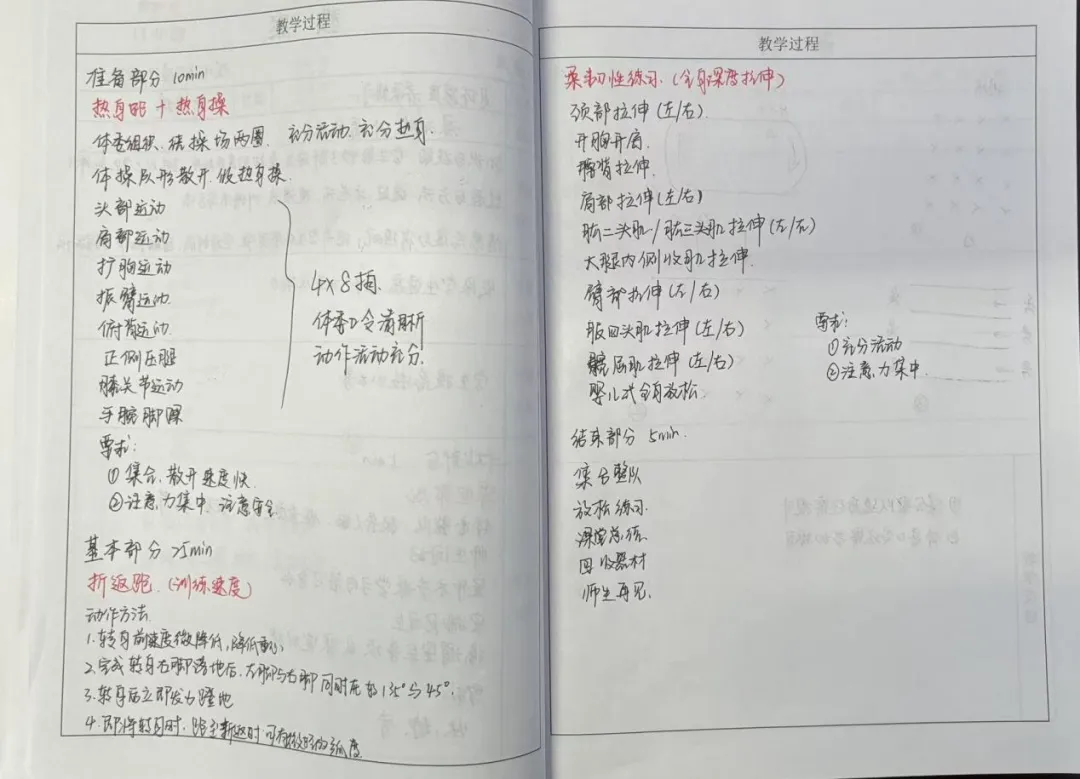 教学过程
准备部分 10min
热身跑 + 热身操
体委组织, 绕操场两圈, 充分活动, 充分热身.
体操队形散开, 做热身操.
头部运动
肩部运动
扩胸运动
振臂运动
俯背运动
正侧压腿
膝关节运动
手腕脚踝
4x8拍.
体委口令清晰
动作活动充分.
要求:
① 集合、散开速度快.
②注意力集中, 注意安全
基本部分 25min
折返跑. (训练速度)
动作方法
1. 转身前速度微降低, 降低重心
2. 完成转身右脚落地后, 左脚与右脚同时在 135°与45°.
3. 转身后立即发力蹬地
4. 即将转身时, 跑至折返时可有较小的弧度
教学过程
柔韧性练习. (全身深度拉伸)
颈部拉伸 (左/右)
开胸开肩.
腰背拉伸.
肩部拉伸 (左/右)
肱二头肌/肱三头肌拉伸 (左/右)
大腿内侧收肌拉伸.
臂部拉伸 (左/右)
股四头肌拉伸 (左/右)
髋屈肌拉伸 (左/右)
婴儿式全身放松.
要求:
①充分活动
②注意力集中.
结束部分 5min.
集合整队
放松练习.
课堂总结.
回收器材
师生再见.